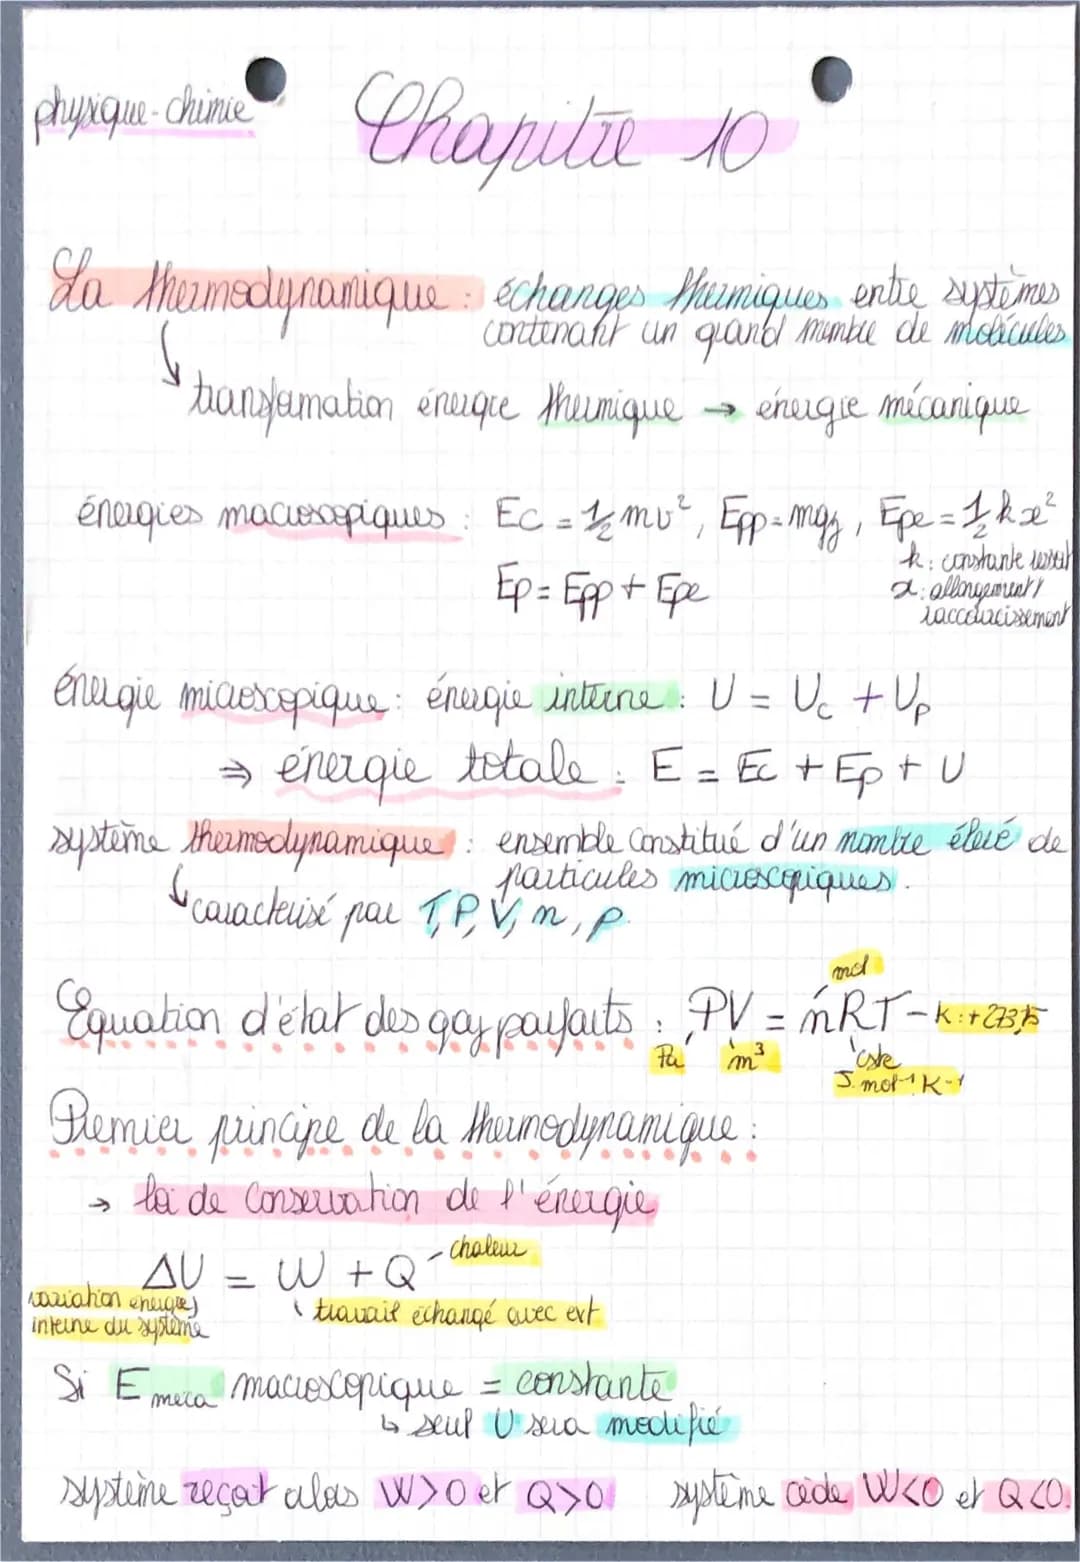 physique-chimie
Chapitre 10
La thermodynamique : échanges thermiques entre systèmes
contenant un grand nombre de molécules
↳ transformation énergie thermique → énergie mécanique
énergies macroscopiques : Ec = 1/2 mv², Epp = mgz, Epe = 1/2 kx²
k : constante ressort
Ep = Epp + Epe
x : allongement/
raccourcissement
énergie microscopique : énergie interne : U = Uc + Up
⇒ énergie totale : E = Ec + Ep + U
système thermodynamique : ensemble constitué d'un nombre élevé de
particules microscopiques.
↳ caractérisé par T, P, V, n, ρ.
mol
Equation d'état des gaz parfaits : PV = nRT – K : +273,15
Pa m³ cste
J.mol-1.K-1
Premier principe de la thermodynamique :
→ loi de conservation de l'énergie
ΔU = W + Q - chaleur
variation énergie
interne du système
travail échangé avec ext
Si E meca macroscopique = constante
↳ seul U sera modifié
système reçoit alors W>0 et Q>0 système cède W<0 et Q<0.